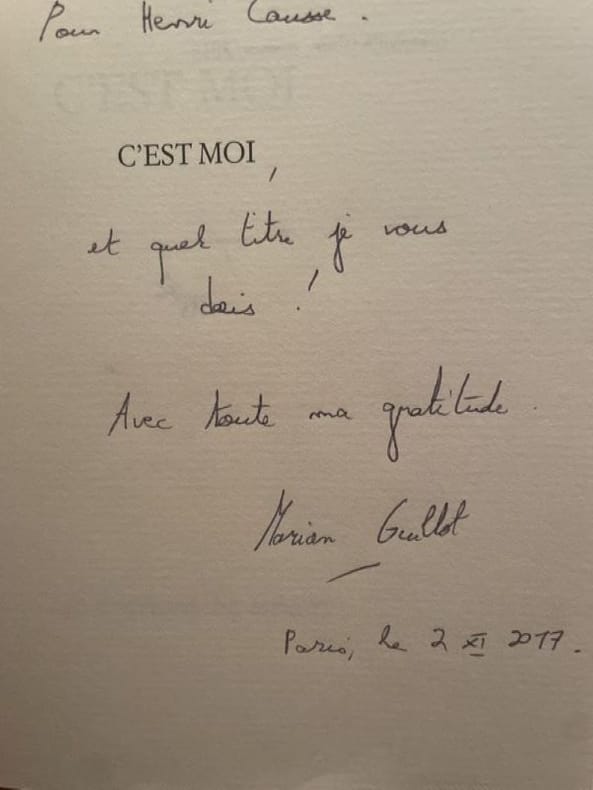 Pour Henri Causse.
C'EST MOI,
et quel titre je vous
dois !
Avec toute ma gratitude.
Marian Guillot
Paris, le 2 XI 2017.